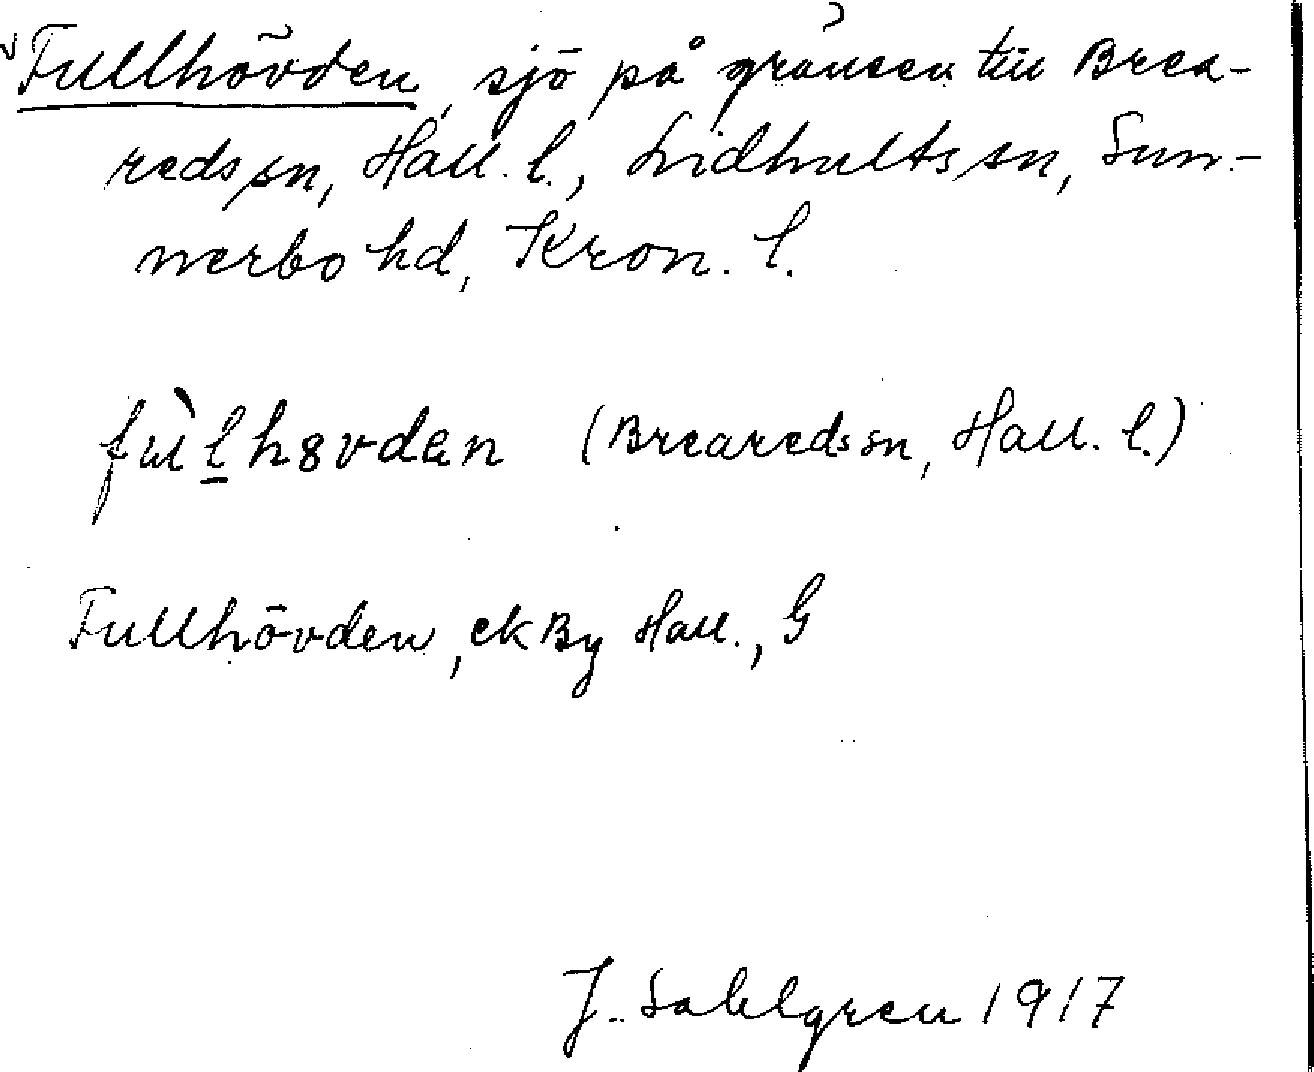 Fullhövden, sjö på gränsen till Brea-
reds sn, Hall. l., Lidhults sn, Sun-
nerbo hd, Kron. l.
fùlhøvdan (Breareds sn, Hall. l.)
Fullhövden, ek By Hall., G
J. Sahlgren 1917